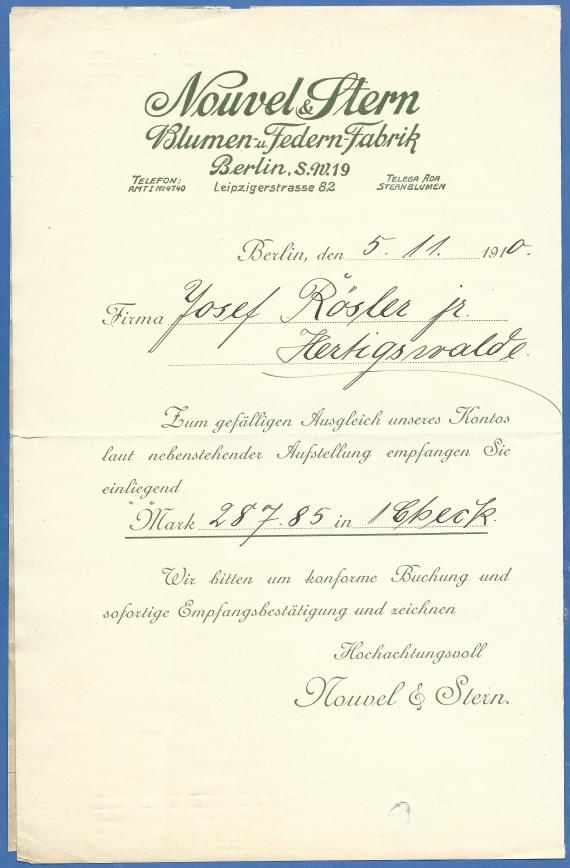 Nouvel & Stern
Blumen- u. Federn-Fabrik
Berlin, S.W.19
TELEFON:
AMT I No 4740
Leipzigerstrasse 82
TELEGR ADR
STERNBLUMEN
Berlin, den 5. 11. 1910.
Firma Josef Rösler jr.
Hertigswalde.
Zum gefälligen Ausgleich unseres Kontos
laut nebenstehender Aufstellung empfangen Sie
einliegend
Mark 287.85 in 1 Check.
Wir bitten um konforme Buchung und
sofortige Empfangsbestätigung und zeichnen
Hochachtungsvoll
Nouvel & Stern.